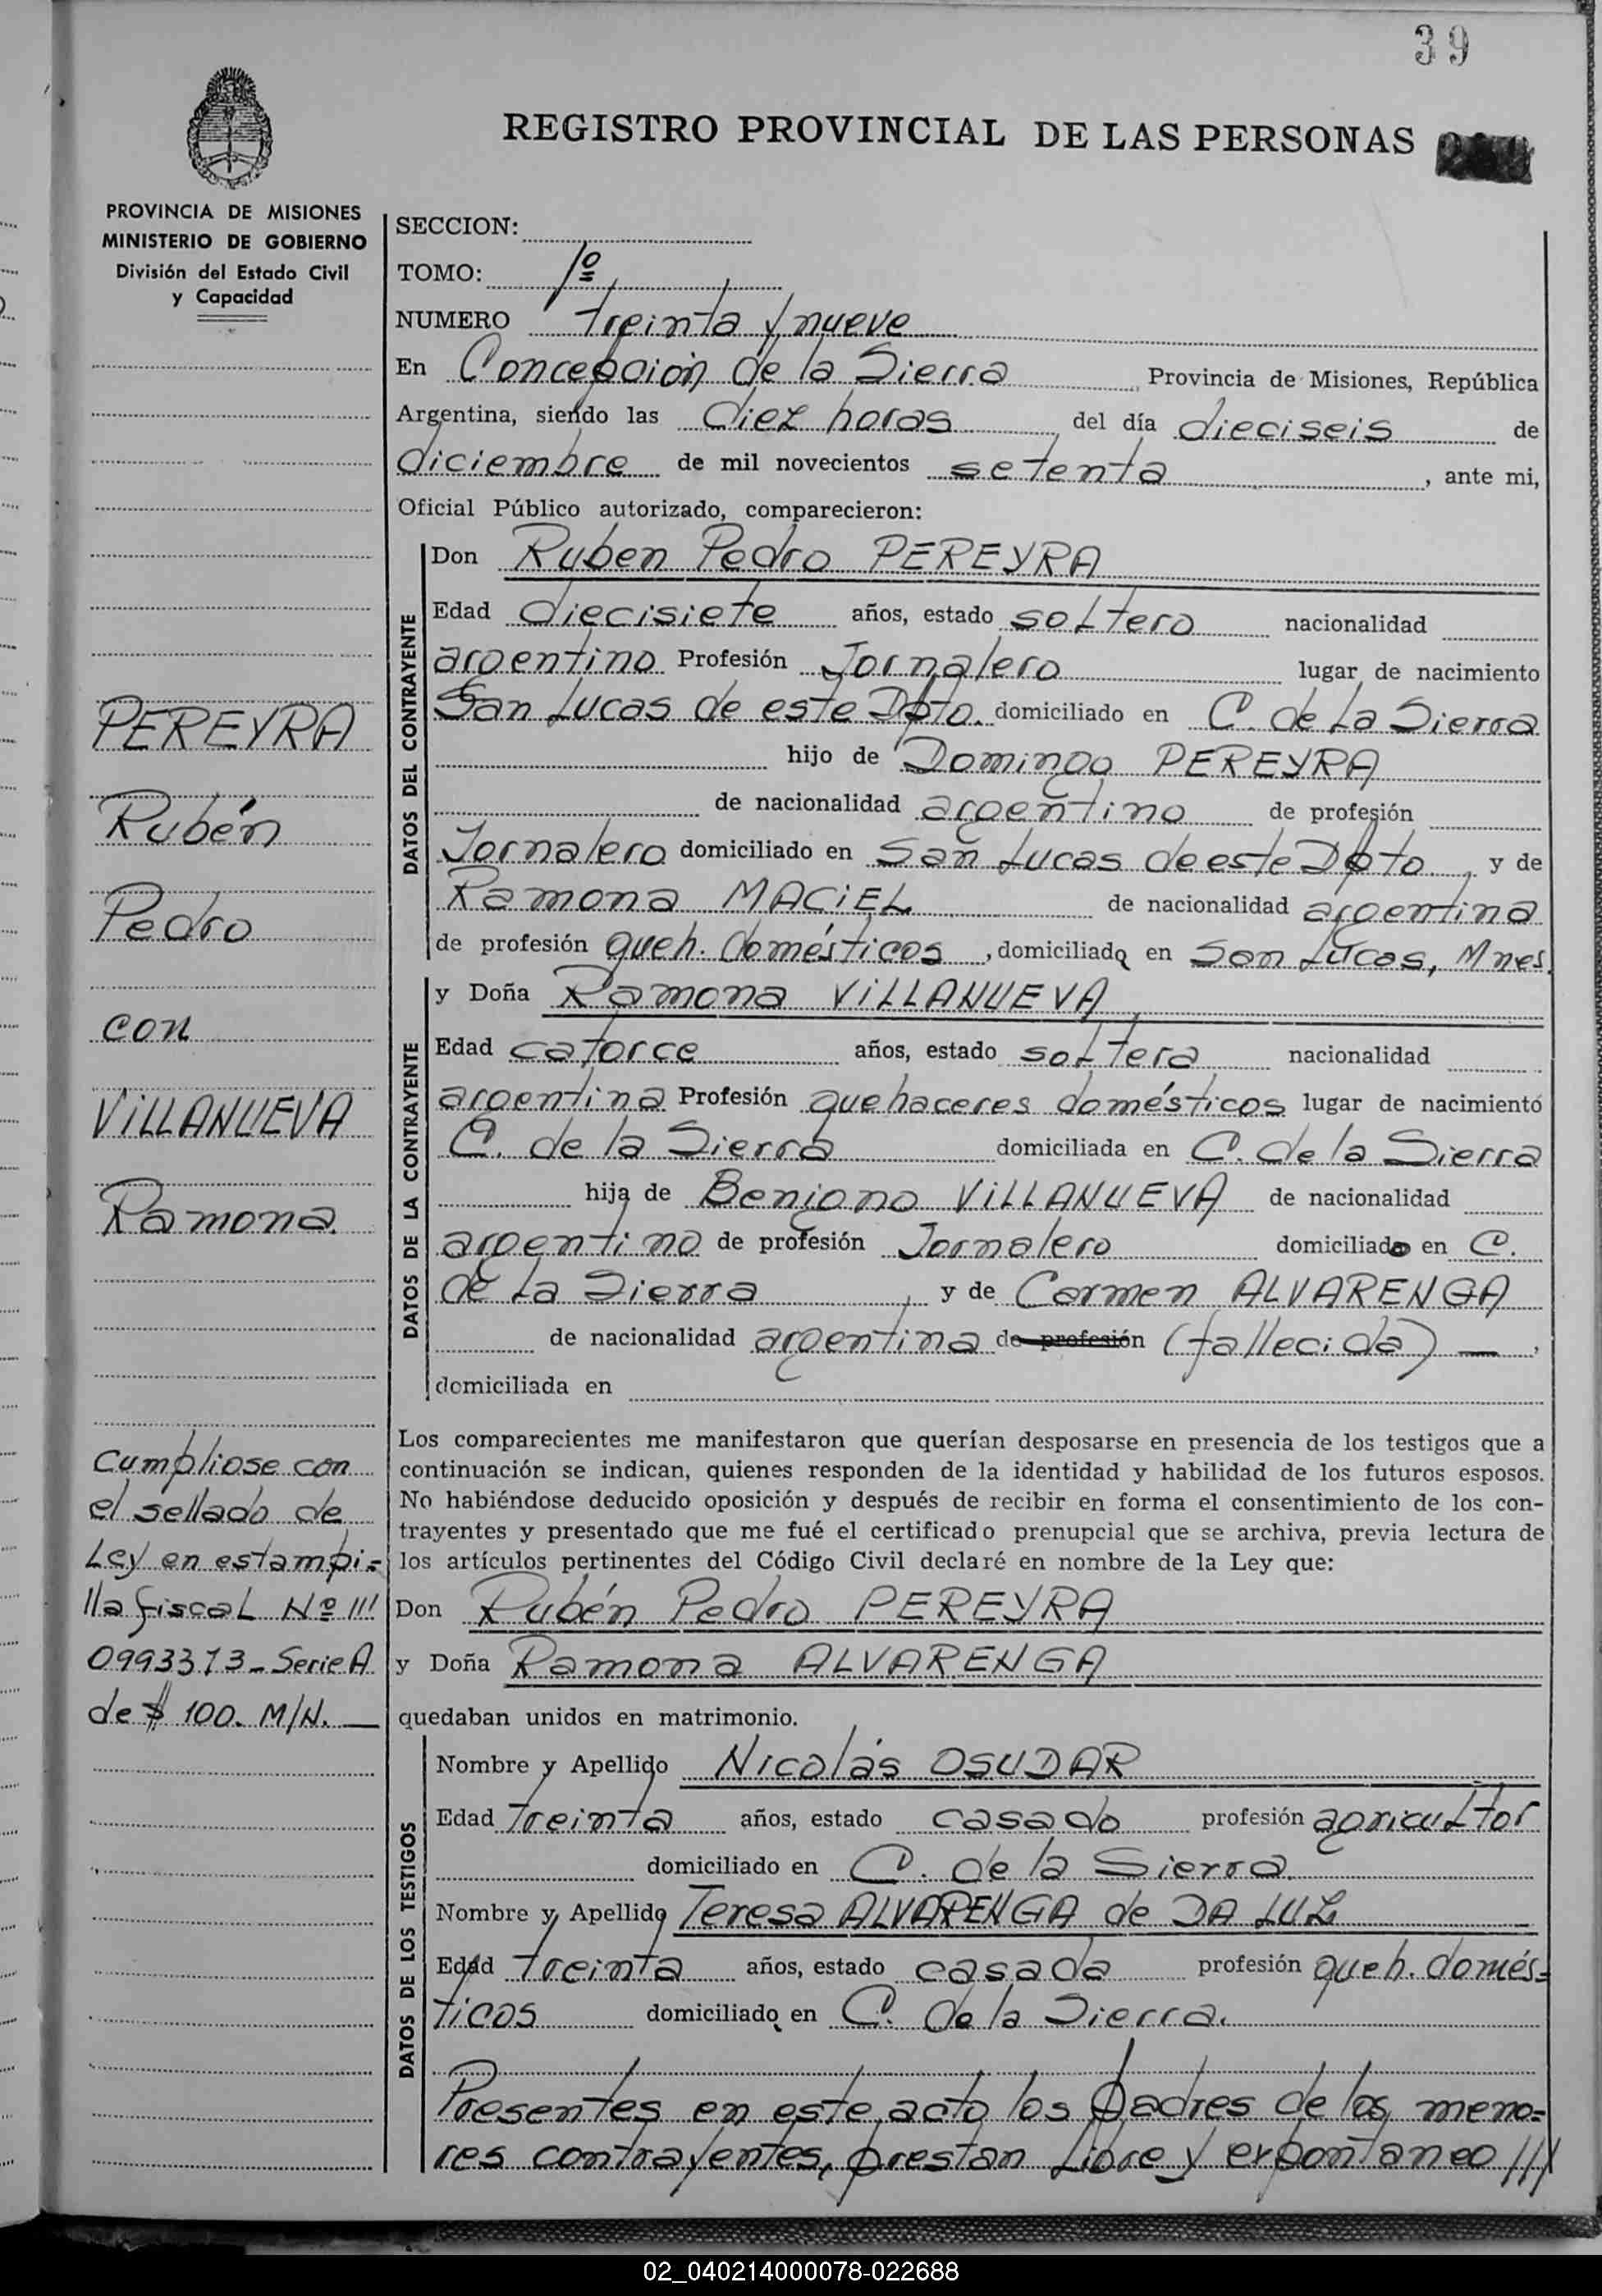 39
REGISTRO PROVINCIAL DE LAS PERSONAS
PROVINCIA DE MISIONES
MINISTERIO DE GOBIERNO
División del Estado Civil
y Capacidad
SECCION:
TOMO: 1º
NUMERO treinta y nueve
En Concepción de la Sierra Provincia de Misiones, República
Argentina, siendo las diez horas del día dieciseis de
diciembre de mil novecientos setenta, ante mi,
Oficial Público autorizado, comparecieron:
DATOS DEL CONTRAYENTE
Don Ruben Pedro PEREYRA
Edad diecisiete años, estado soltero nacionalidad
argentino Profesión Jornalero lugar de nacimiento
San Lucas de este Dpto. domiciliado en C. de La Sierra
hijo de Domingo PEREYRA
de nacionalidad argentino de profesión
Jornalero domiciliado en San Lucas de este Dpto. y de
Ramona MACIEL de nacionalidad argentina
de profesión queh. domésticos, domiciliada en San Lucas, Mnes.
DATOS DE LA CONTRAYENTE
y Doña Ramona VILLANUEVA
Edad catorce años, estado soltera nacionalidad
argentina Profesión quehaceres domésticos lugar de nacimiento
C. de la Sierra domiciliada en C. de la Sierra
hija de Benigno VILLANUEVA de nacionalidad
argentino de profesión Jornalero domiciliado en C.
de La Sierra y de Carmen ALVARENGA
de nacionalidad argentina de profesión (fallecida) —,
domiciliada en
Los comparecientes me manifestaron que querían desposarse en presencia de los testigos que a
continuación se indican, quienes responden de la identidad y habilidad de los futuros esposos.
No habiéndose deducido oposición y después de recibir en forma el consentimiento de los con-
trayentes y presentado que me fué el certificado prenupcial que se archiva, previa lectura de
los artículos pertinentes del Código Civil declaré en nombre de la Ley que:
Don Rubén Pedro PEREYRA
y Doña Ramona ALVARENGA
quedaban unidos en matrimonio.
DATOS DE LOS TESTIGOS
Nombre y Apellido Nicolás OSUDAR
Edad treinta años, estado casado profesión agricultor
domiciliado en C. de la Sierra
Nombre y Apellido Teresa ALVARENGA de DA LUZ
Edad treinta años, estado casada profesión queh. domés=
ticos domiciliado en C. de la Sierra.
Presentes en este acto los padres de los meno=
res contrayentes, prestan libre y expontaneo ///
PEREYRA
Rubén
Pedro
con
VILLANUEVA
Ramona.
Cumpliose con
el sellado de
Ley en estampi=
lla fiscal Nº ///
0993373_Serie A
de $ 100. M/N. —
02_040214000078-022688